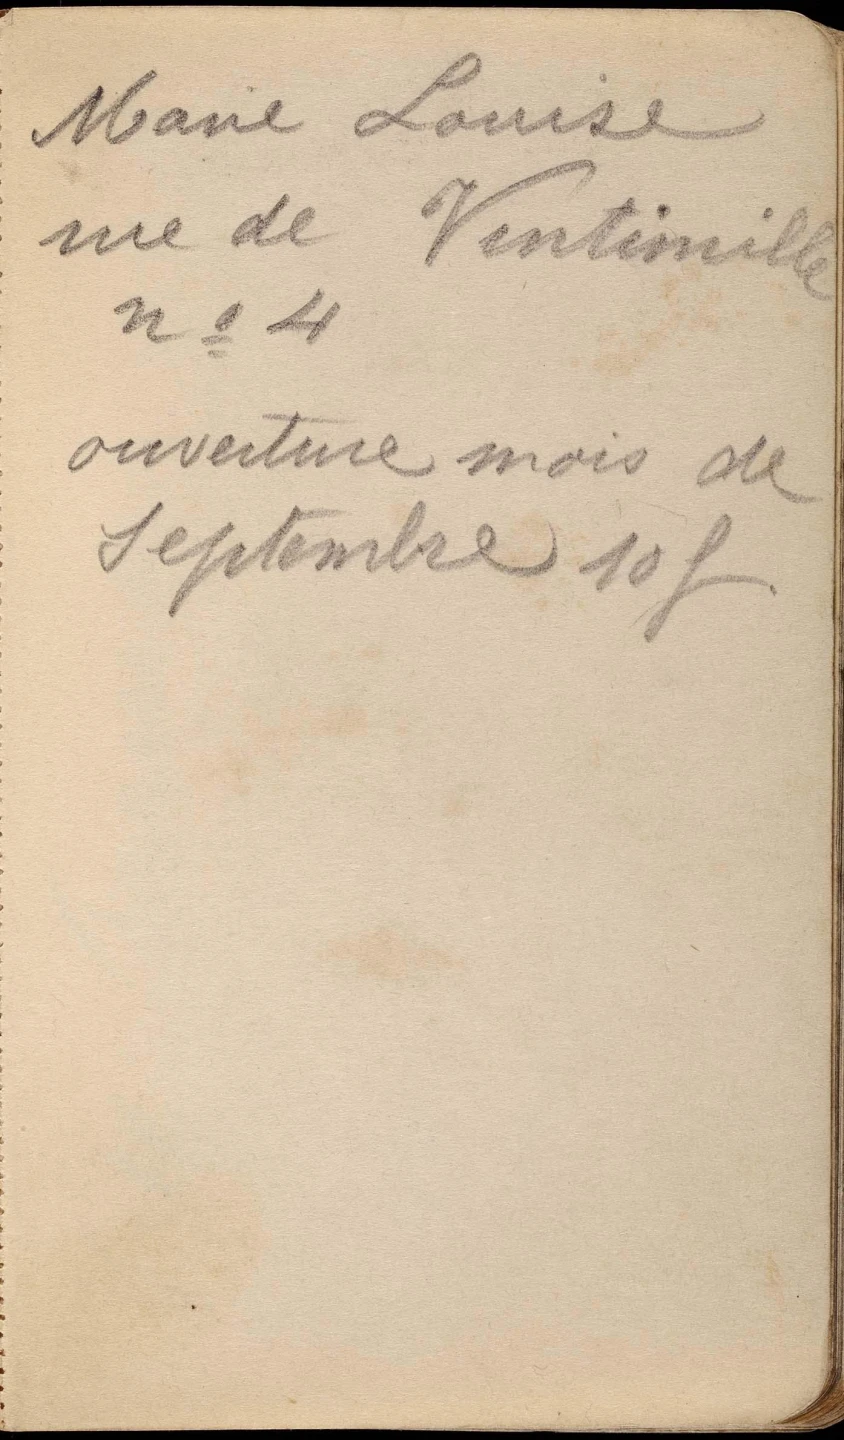 Marie Louise
rue de Ventimille
nº 4
ouverture mois de
Septembre 10 f